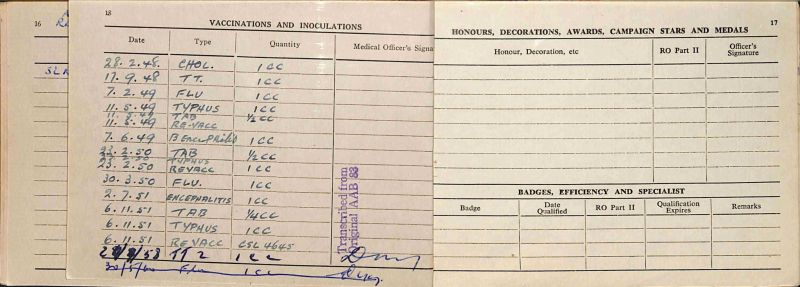 16
18
VACCINATIONS AND INOCULATIONS
Date Type Quantity Medical Officer's Signa
28.2.48. CHOL. 1 CC
17.9.48 TT. 1 CC
7.2.49 FLU 1 CC
11.5.49 TYPHUS 1 CC
TAB ½ CC
11.5.49 RE-VACC
7.6.49 1 CC
23.2.50 TAB ½ CC
TYPHUS
23.2.50 REVACC 1 CC
30.3.50 FLU. 1 CC
2.7.51 ENCEPHALITIS 1 CC
6.11.51 TAB ¼ CC
6.11.51 TYPHUS 1 CC
6.11.51 REVACC CSL 4645
TT 2 1 CC
Flu 1 CC
Transcribed from
Original AAB 83
17
HONOURS, DECORATIONS, AWARDS, CAMPAIGN STARS AND MEDALS
Honour, Decoration, etc RO Part II Officer's Signature
BADGES, EFFICIENCY AND SPECIALIST
Badge Date Qualified RO Part II Qualification Expires Remarks